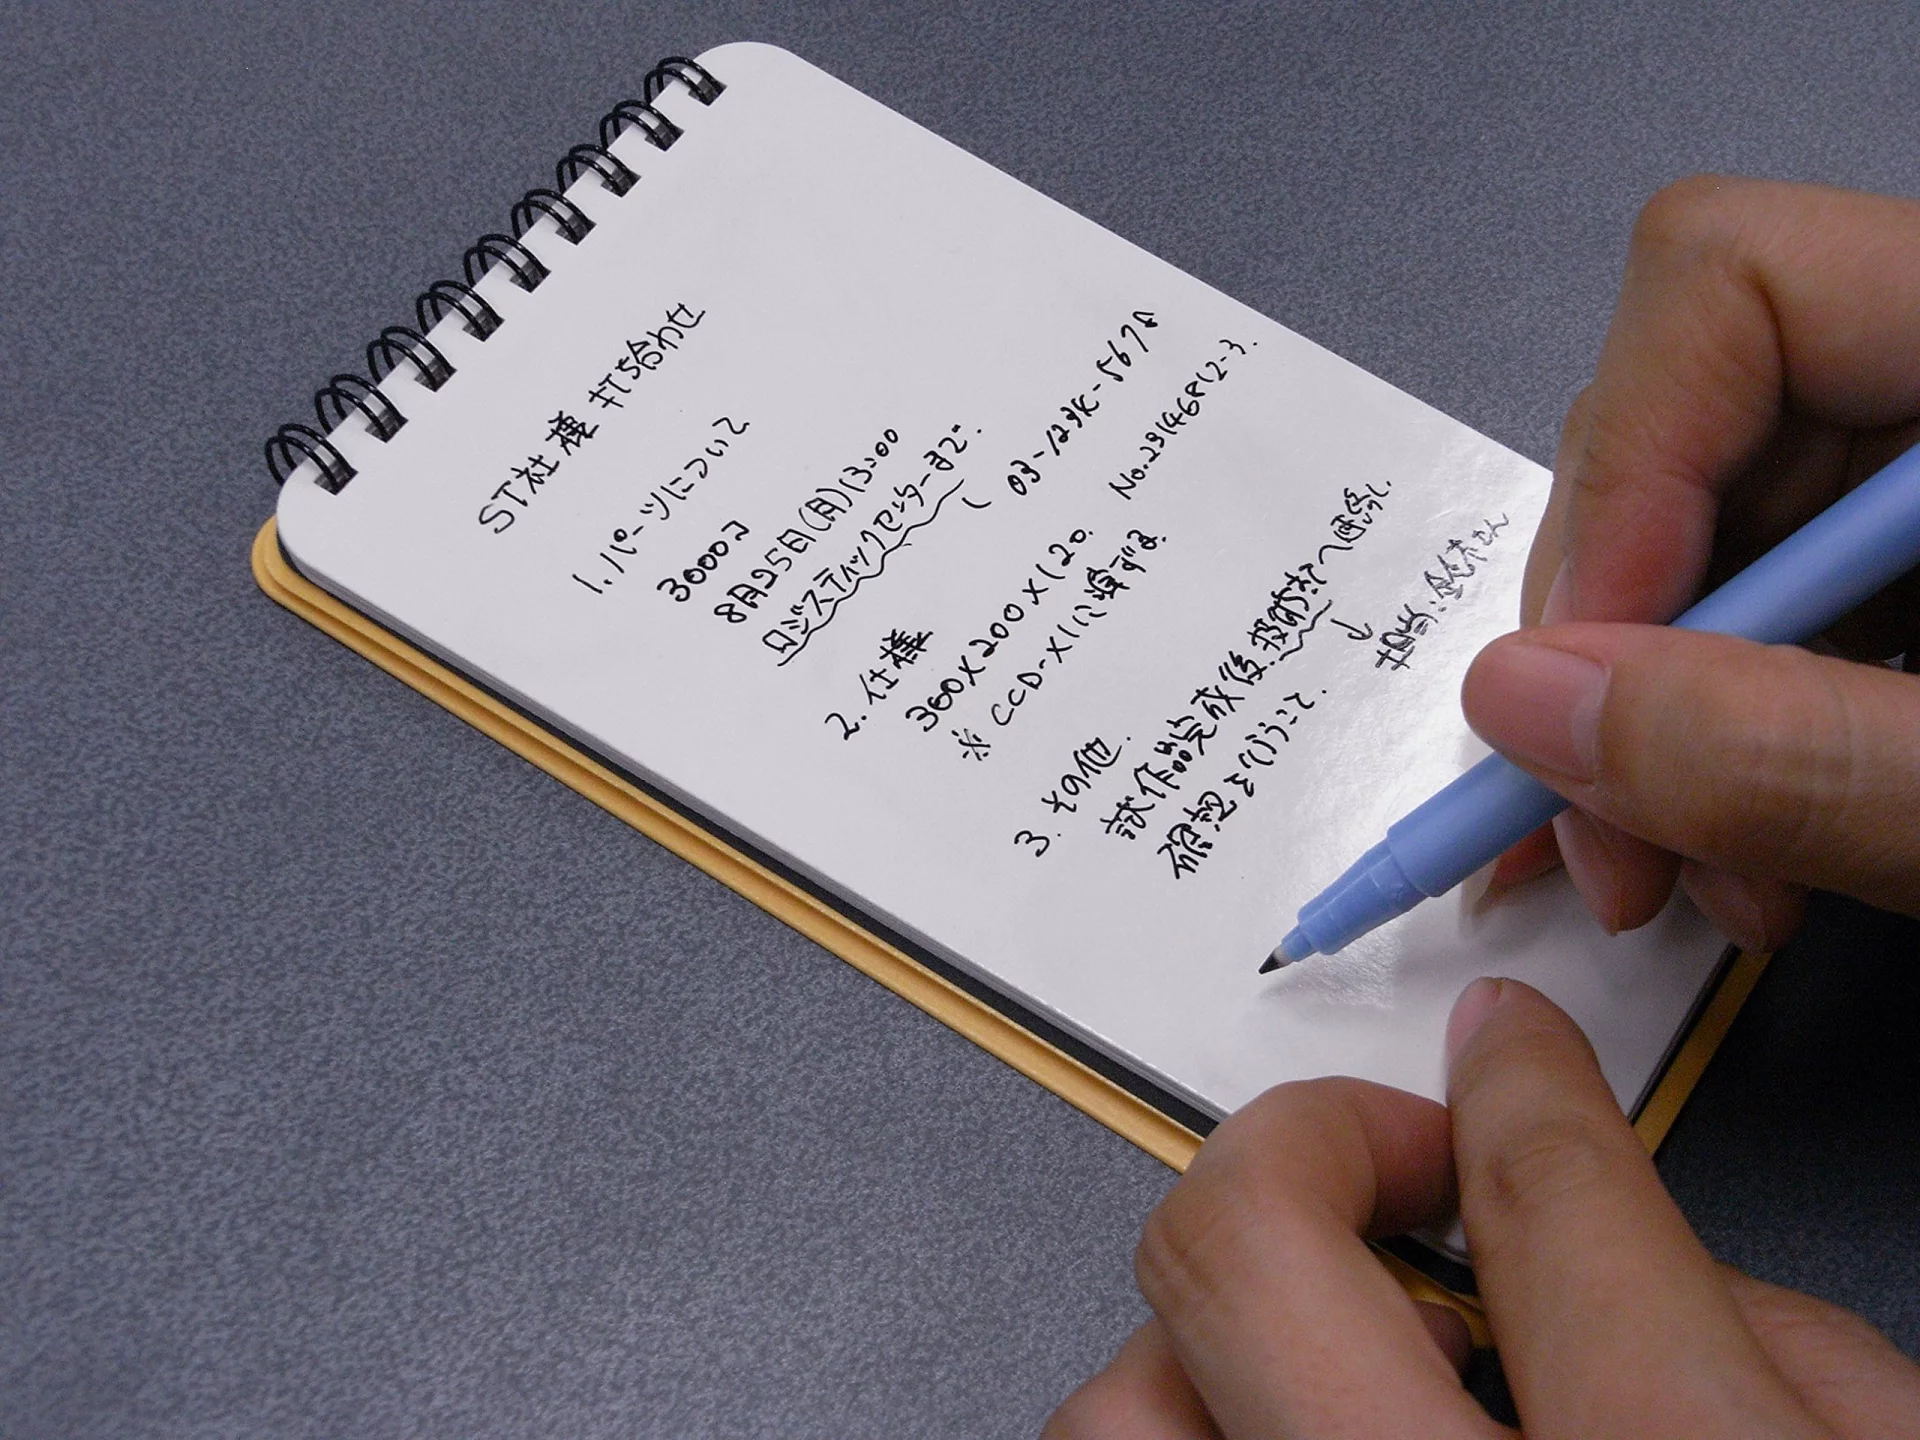 ST社様 打ち合わせ
1. パーツについて
3000コ
8月25日(月)13:00
ロジスティックセンターまで.
03-123X-567
2. 仕様
300×200×120.
No.23146812-3.
※ CCD-X1に準ずる.
3. その他.
試作品完成後、技術部へ連絡し.
確認を行うこと.
↓
担当:鈴木さん